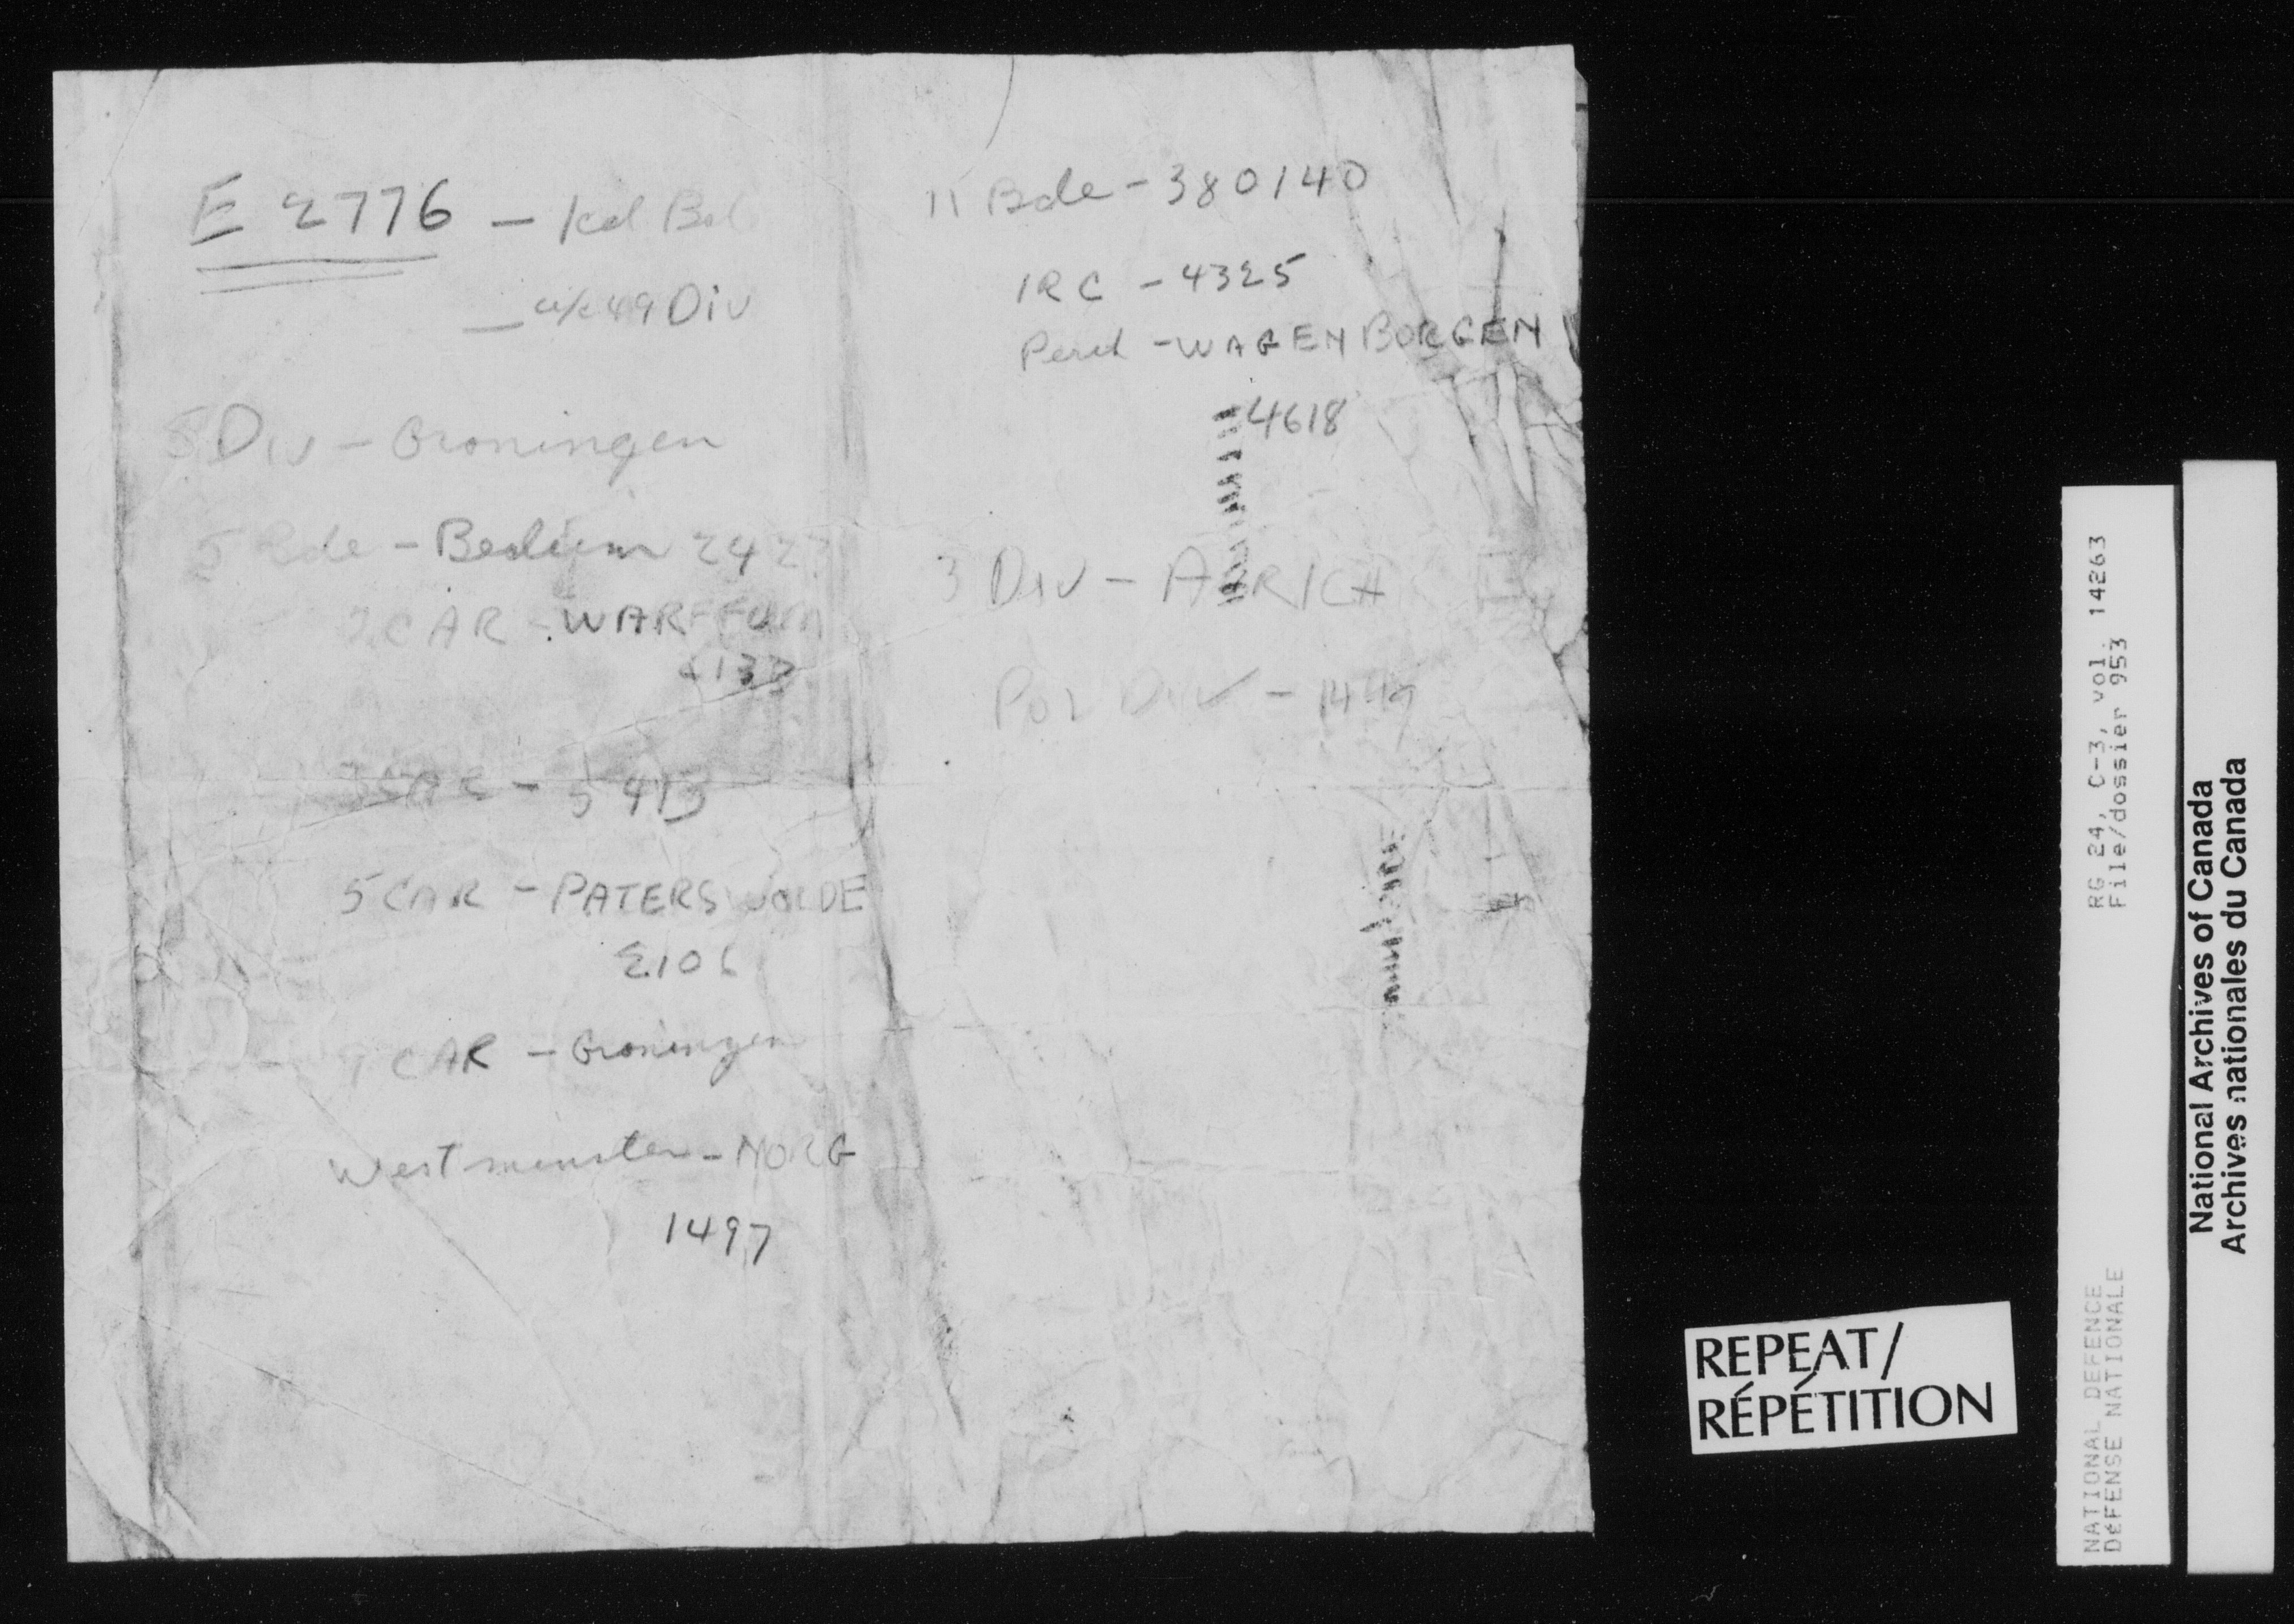 E 2776 – Kel Bol
– u/c 49 Div
5 Div – Groningen
5 Bde – Bedum 242
2 CAR – WARFFUM
4133
– 5413
5 CAR – PATERSWOLDE
2106
9 CAR – Groningen
Westminster – NORG
1497
11 Bde – 380140
IRC – 4325
Perth – WAGENBORGEN
4618
3 Div – AURICH
Pol Div – 1449
REPEAT/
RÉPÉTITION
RG 24, C-3, vol. 14263
File/dossier 953
NATIONAL DEFENCE
DÉFENSE NATIONALE
National Archives of Canada
Archives nationales du Canada